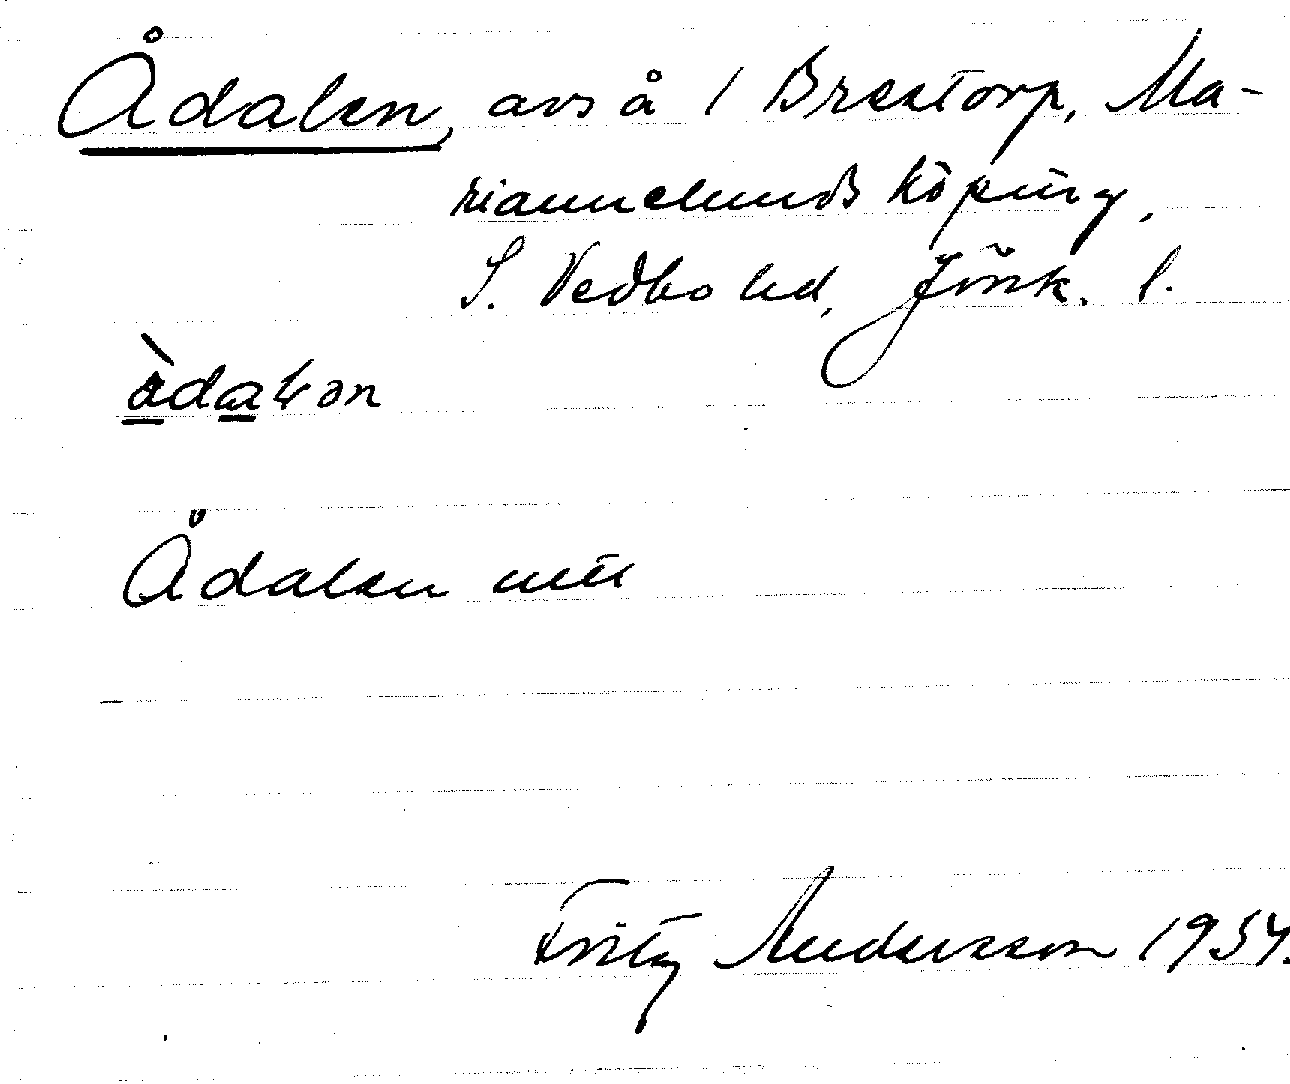 Ådalen, avs å 1 Brestorp, Ma-
riannelunds köping,
S. Vedbo hd, Jönk. l.
ådalən
Ådalen
Fritz Andersson 1934.